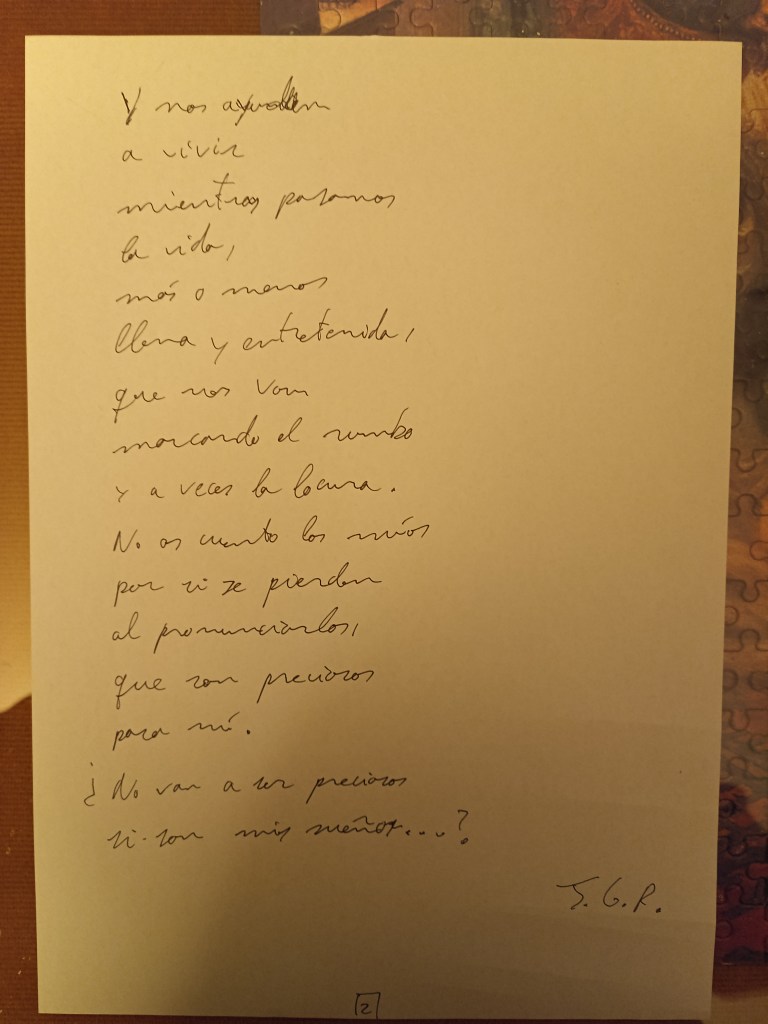 Y nos ayuden
a vivir
mientras pasamos
la vida,
más o menos
llena y entretenida,
que nos van
marcando el rumbo
y a veces la locura.
No os cuento los míos
por si se pierden
al pronunciarlos,
que son preciosos
para mí.
¿No van a ser preciosos
si son mis sueños....?
J. G. R.
2